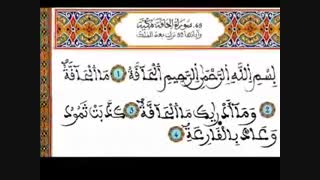 69. سورة الحاقة مكية
وآياتها 52 نزلت بعد الملك
بِسْمِ اللَّهِ الرَّحْمَٰنِ الرَّحِيمِ الْحَاقَّةُ ١ مَا الْحَاقَّةُ
٢ وَمَآ أَدْرَىٰكَ مَا الْحَاقَّةُ ٣ كَذَّبَتْ ثَمُودُ
وَعَادٌ بِالْقَارِعَةِ ٤